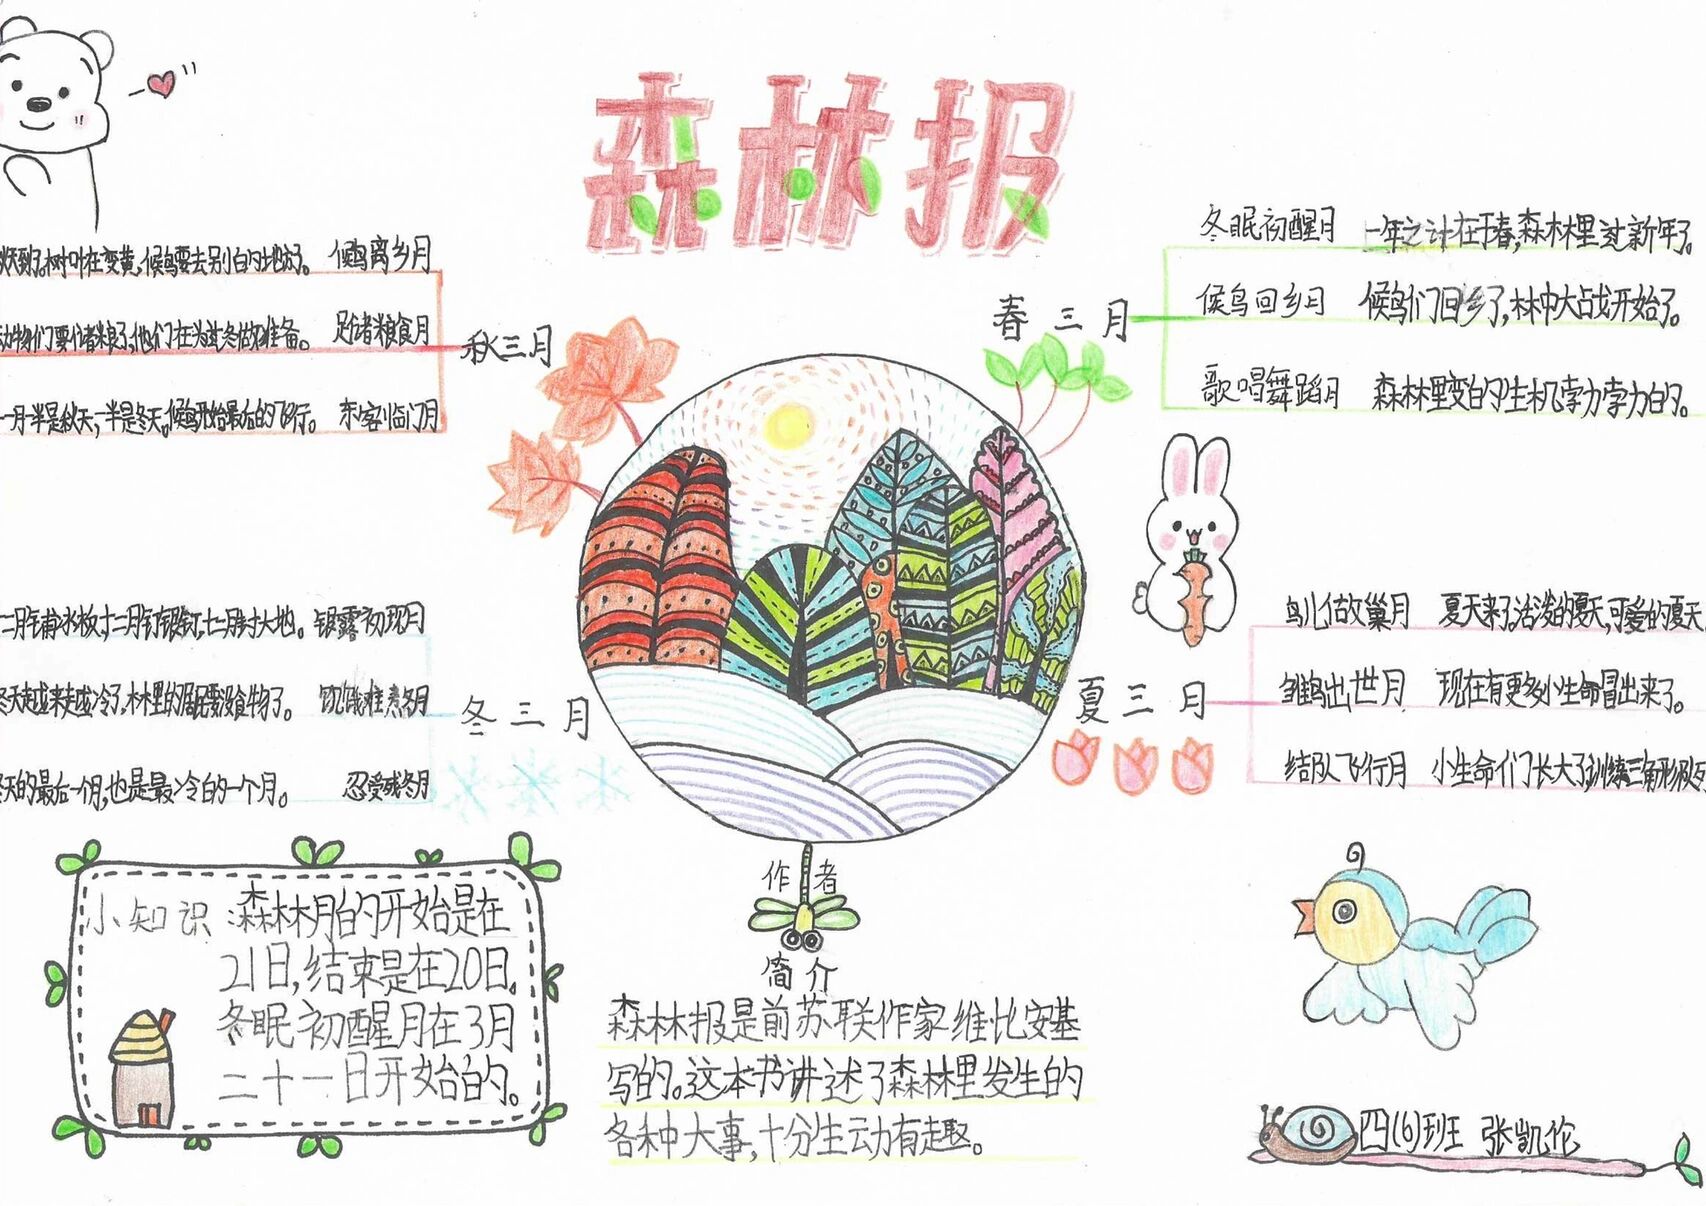 森林报
春三月
冬眠初醒月 一年之计在于春,森林里过新年了。
候鸟回乡月 候鸟们回乡了,林中大战开始了。
歌唱舞蹈月 森林里变的生机孛力孛力的。
夏三月
鸟儿做巢月 夏天来了。活泼的夏天,可爱的夏天
雏鸟出世月 现在有更多小生命冒出来了。
结队飞行月 小生命们长大了,训练三角形队
秋三月
到了。树叶在变黄,候鸟要去别的地方了。 候鸟离乡月
物们要储粮了,他们在为过冬做准备。 足储粮食月
一月半是秋天,一半是冬天。候鸟开始最后的飞行。 冬客临门月
冬三月
二月铺冰板,十二月钉银钉,十二月封大地。 银露初现月
冬天越来越冷了,林里的居民要没食物了。 饥饿难熬冬月
天的最后一个月,也是最冷的一个月。 忍受残冬月
小知识:森林月的开始是在
21日,结束是在20日.
冬眠初醒月在3月
二十一日开始的。
作者
简介
森林报是前苏联作家维·比安基
写的。这本书讲述了森林里发生的
各种大事,十分生动有趣。
四(6)班 张凯伦